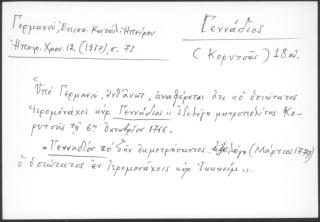 Γερμανοῦ, Ἐπισκ. Κατάλ. Ἠπείρου
Ἠπειρ. Χρον. 12 (1937), σ. 73.
Γεννάδιος
(Κορυτσᾶς) 18 αἰ.
Ὑπὸ Γερμανοῦ, ἀναφέρεται ὅτι "ὁ ὁσιώτατος
ἱερομόναχος κὺρ Γεννάδιος" ἐξελέγη μητροπολίτης Κο-
ρυτσᾶς τῇ 6ῃ Ὀκτωβρίου 1766.
"Γενναδίου τὸ ζῆν ἐκμετρήσαντος" ἐξελέγη (Μάρτιος 1770)
ὁ ὁσιώτατος ἐν ἱερομονάχοις κὺρ Ἰωακείμ".